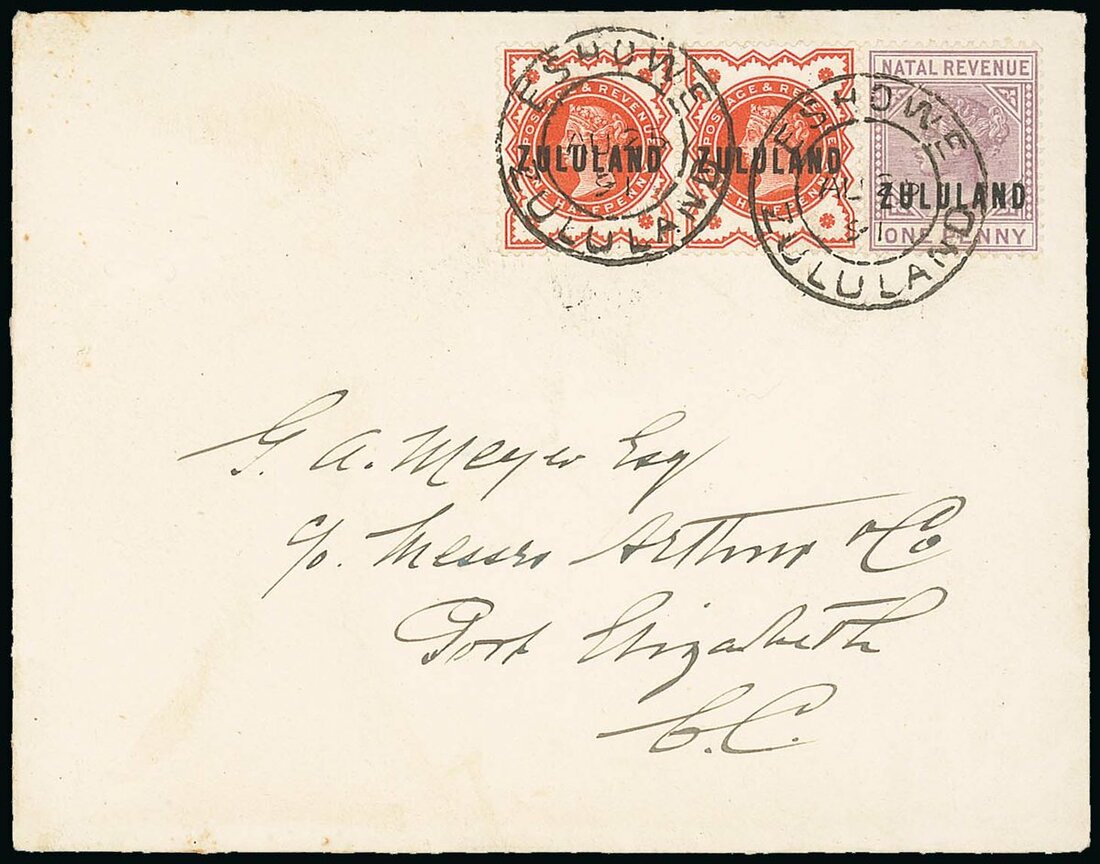 POSTAGE & REVENUE
ZULULAND
ONE HALFPENNY
POSTAGE & REVENUE
ZULULAND
ONE HALFPENNY
NATAL REVENUE
ZULULAND
ONE PENNY
ESHOWE
AU 2
91
ZULULAND
ESHOWE
AU 2
91
ZULULAND
G. A. Meyer Esq
c/o. Messrs Arthur & Co
Port Elizabeth
C.C.